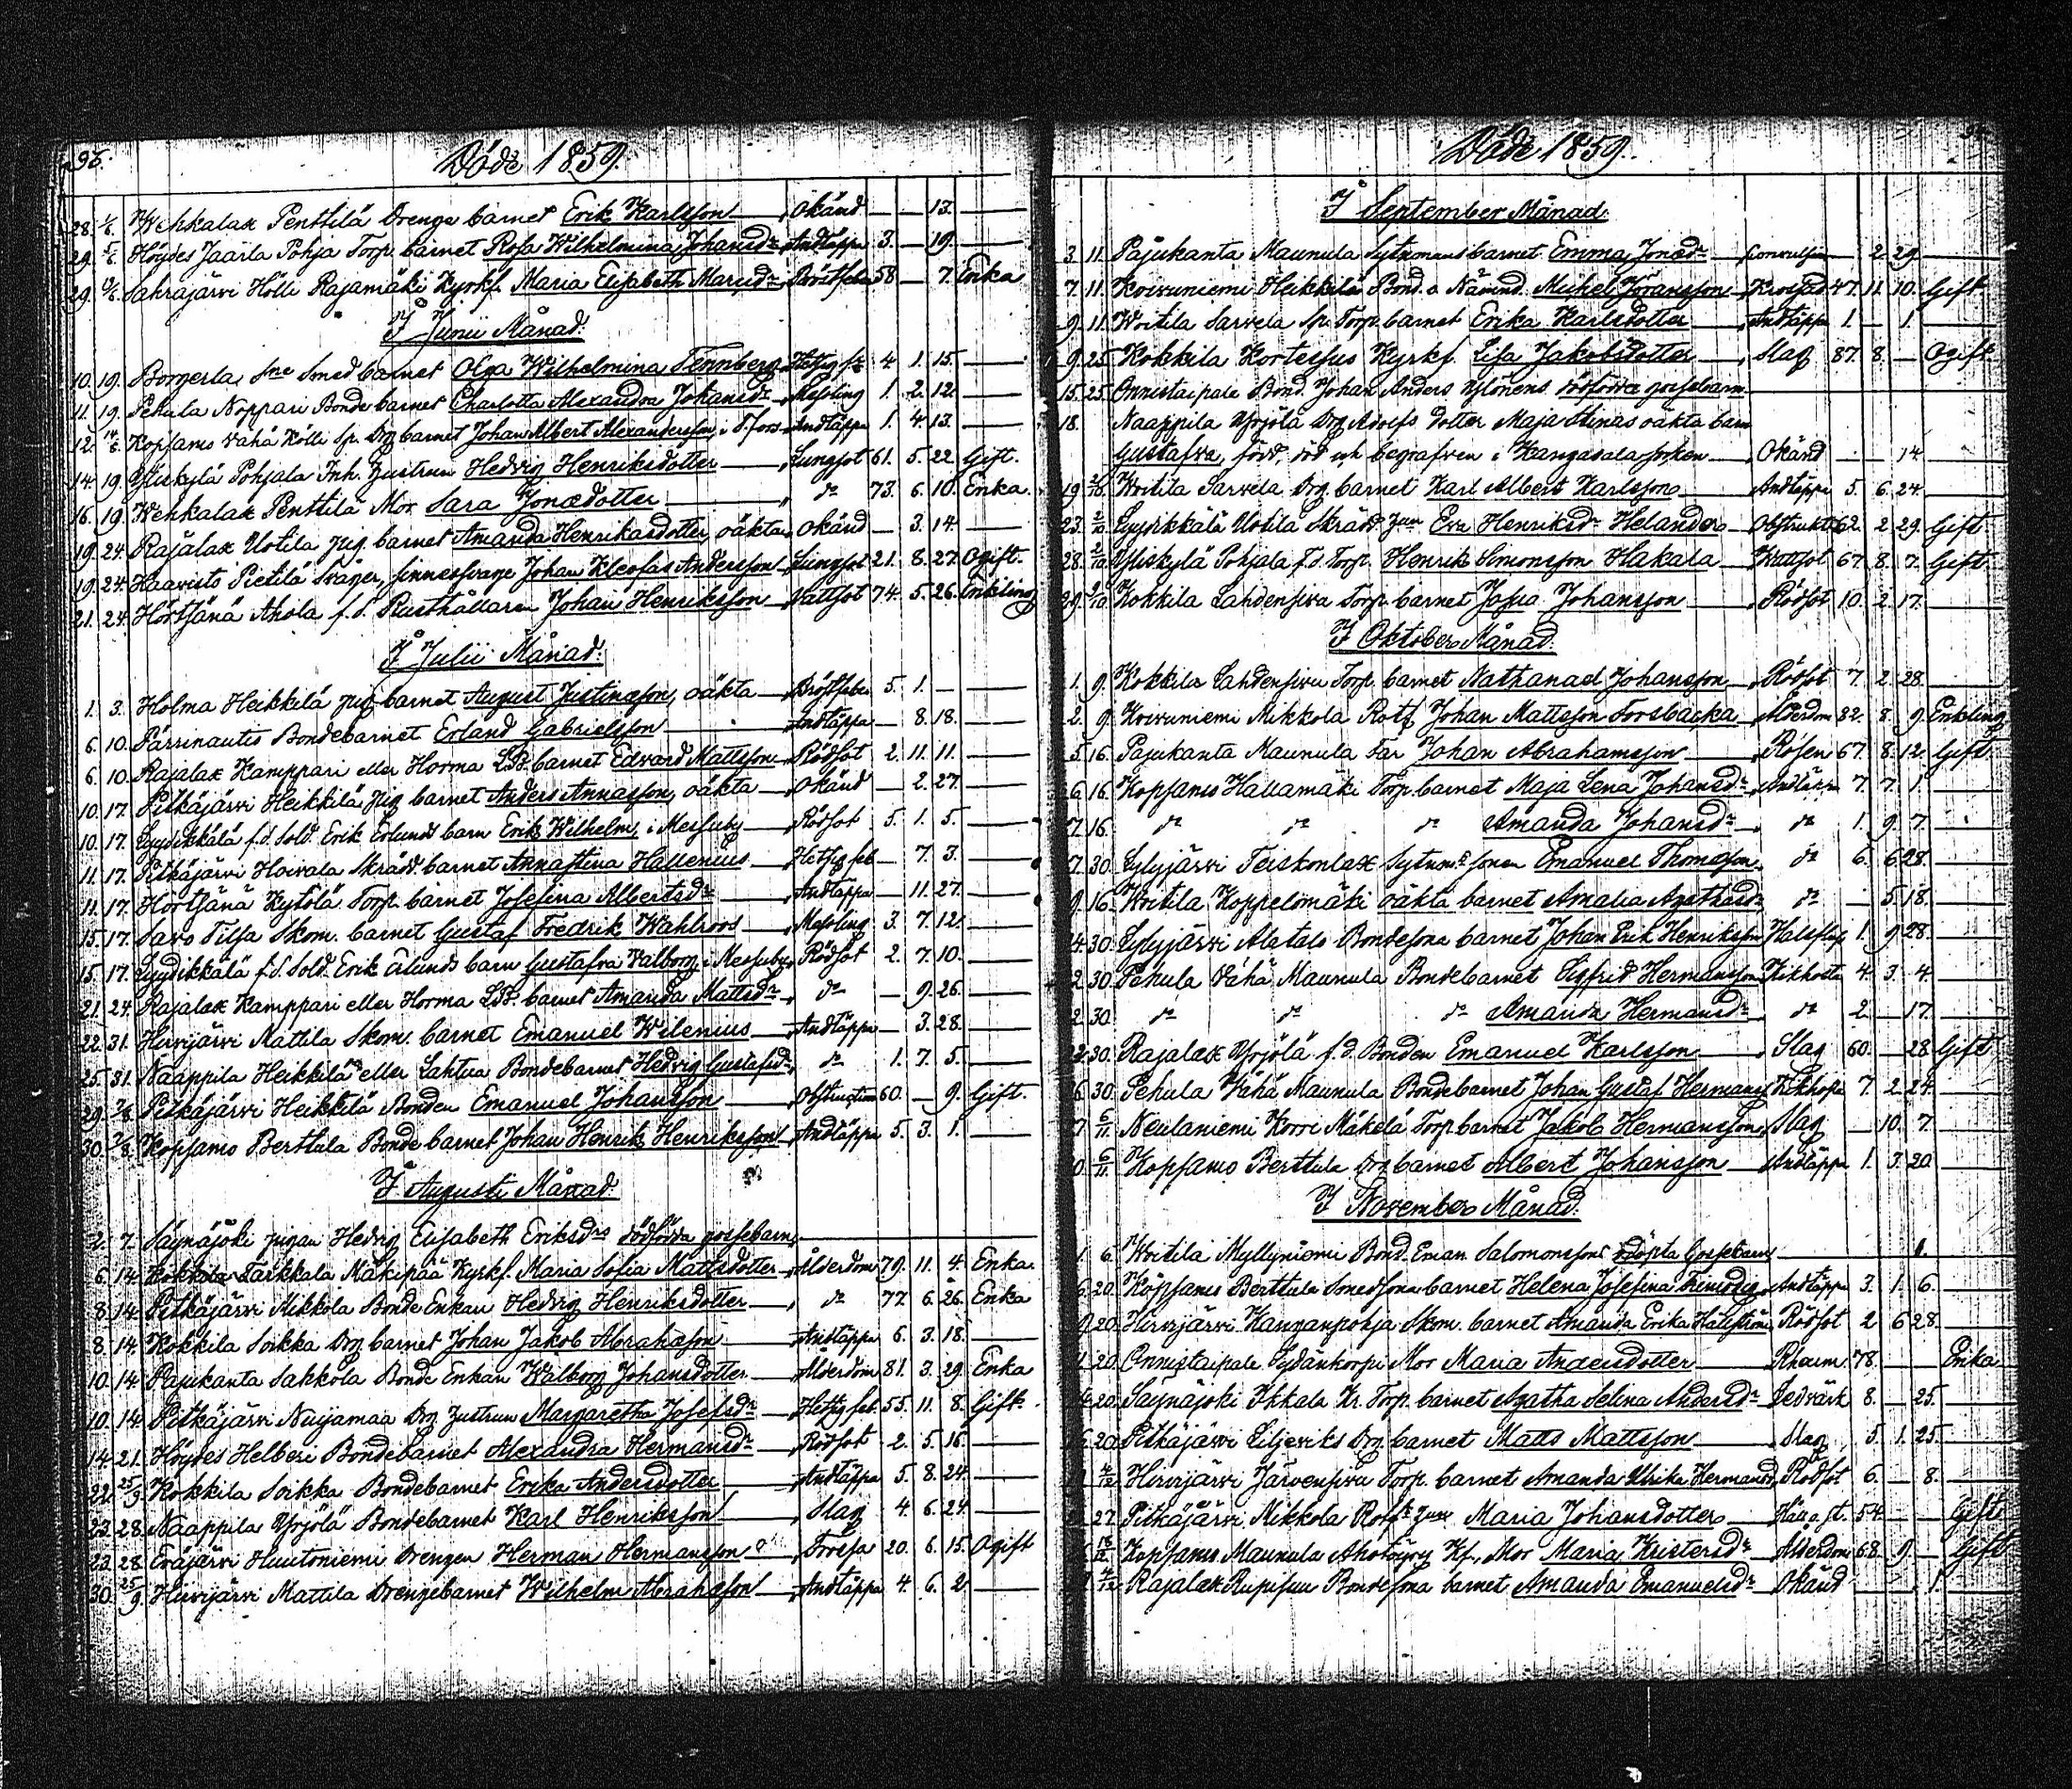 96.
Döde 1859.
28. 1/6. Wehkalax Penttilä Drenge barnet Erik Karlsson Okänd — — 13. —
29. 5/6 Höydes Jaarla Pohja Torp. barnet Rosa Wilhelmina Johansdr Andtäppa 3. — 19. —
29. Sahrajärvi Hölli Rajamäki Kyrkf. Maria Elisabeth Bröstfeber 58 — 7. Enka
I Junii Månad.
10. 19. Borgerla Smed barnet Olga Wilhelmina Tennberg Hetsig fr 4 1. 15. —
11. 19. Pehula Noppari Bonde barnet Charlotta Alexandra Johansdr Messling 1. 2. 12. —
12. 14/6. Kopsamo Vähä Kölli Sp. Drg barnet Johan Albert Alexandersson, i T.fors Andtäppa 1. 4. 13. —
14. 19. Yliskylä Pohjala Inh. hustrun Hedvig Henriksdotter Lungsot 61. 5. 22. Gift.
16. 19. Wehkalax Penttilä Mor Sara Jonædotter do 73. 6. 10. Enka.
19. 24. Rajalax Uotila pig. barnet Amanda Henrikasdotter, oäkta Okänd — 3. 14. —
19. 24. Haavisto Pietilä Svåger, sinnessvage Johan Kleofas Andersson Lungsot 21. 8. 27. Ogift.
21. 24. Hörtsänä Ahola f.d. Rusthållaren Johan Henriksson Vattsot 74. 5. 26. Enkling
I Julii Månad.
1. 3. Holma Heikkilä pig. barnet August Justinæson, oäkta Bröstfeber 5. 1. — —
6. 10. Pärrinautis Bondebarnet Erland Gabrielsson Andtäppa — 8. 18. —
6. 10. Rajalax Kamppari eller Horma LB. barnet Edvard Mattsson Rödsot 2. 11. 11. —
10. 17. Pitkäjärvi Heikkilä Pig. barnet Anders Annasson, oäkta Okänd — 2. 27. —
10. 17. Lyydikkälä f.d. Sold. Erik Erlunds barn Erik Wilhelm, i Messuby Rödsot 5. 1. 5. —
11. 17. Pitkäjärvi Hoivala Skrädd. barnet Annastina Hallenius Hetsig feb — 7. 3. —
11. 17. Hörtsänä Kytölä Torp. barnet Josefina Albertsdr Andtäppa — 11. 27. —
15. 17. Savo Tilsa Skom. barnet Gustaf Fredrik Wahlroos Messling 3. 7. 12. —
15. 17. Lyydikkälä f.d. Sold. Erik Erlunds barn Gustafva Walborg i Messuby Rödsot 2. 7. 10. —
21. 24. Rajalax Kamppari eller Horma LB. barnet Amanda Mattsdr do — 9. 26. —
22. 31. Hirvijärvi Mattila Skom. barnet Emanuel Wilenius Andtäppa — 3. 28. —
25. 31. Naappila Heikkilä eller Lahtua Bondebarnet Hedvig Gustafsdr do 1. 7. 5. —
29. 7/8 Pitkäjärvi Heikkilä Bonden Emanuel Johansson Obstruction 60. — 9. Gift.
30. 7/8 Kopsamo Berttula Bonde barnet Johan Henrik Henriksson Andtäppa 5. 3. 1. —
I Augusti Månad.
2. 7. Säynäjoki pigan Hedvig Elisabeth Eriksdrs dödfödda gossebarn —
6. 14. Tarkkala Mäkipää Kyrkf. Maria Sofia Mattsdotter Ålderdom 79. 11. 4. Enka.
8. 14. Pitkäjärvi Mikkola Bonde Enkan Hedvig Henriksdotter do 77. 6. 26. Enka
8. 14. Kokkila Soikka Drg barnet Johan Jakob Abrahæson Andtäppa 6. 3. 18. —
10. 14. Pajukanta Sakkola Bonde Enkan Walborg Johansdotter Ålderdom 81. 3. 29. Enka
10. 14. Pitkäjärvi Nuijamaa Drg hustrun Margaretha Josefsdr Hetsig feb. 55. 11. 8. Gift
14. 21. Höydes Helberi Bondebarnet Alexandra Hermansdr Rödsot 2. 5. 16. —
22. 25/9. Kokkila Soikka Bondebarnet Erika Andersdotter Andtäppa 5. 8. 24. —
23. 28. Naappila Yrjölä Bondebarnet Karl Henriksson Slag 4. 6. 24. —
23. 28. Eräjärvi Huutoniemi Drengen Herman Hermansson Torrsa 20. 6. 15. Ogift
30. 25/9 Hirvijärvi Mattila Drengebarnet Wilhelm Abrahæson Andtäppa 4. 6. 2. —
Döde 1859.
I September Månad.
3. 11. Pajukanta Maunula Sytnomans barnet Emma Jonædr Convulsion — 2. 29. —
7. 11. Koivuniemi Heikkilä Bond. o Nämnd. Michel Göransson 47. 11. 10. Gift
9. 11. Woitila Sarvela Sp. Torp. barnet Erika Karlsdotter Andtäppa 1. — 1. —
9. 25. Kokkila Kortessus Kyrkf. Lisa Jakobsdotter Slag 87. 8. — Ogift
15. 25. Onnistaipale Bond. Johan Anders Ylönens dödfödda gossebarn
18. Naappila Yrjölä Drg Adolfs dotter Maja Stinas oäkta barn
Gustafva, född, död och begrafven i Kangasala socken Okänd — — 14.
19. 2/10. Woitila Sarvela Drg. barnet Karl Albert Karlsson Andtäppa 5. 6. 24. —
23. 2/10 Lyydikkälä Uotila Skrädd. hun Eva Henriksdr Helander Obstrukt 62. 2. 29. Gift
28. 2/10 Yliskylä Pohjala f.d. Torp. Henrik Simonsson Hakala Wattsot 67. 8. 7. Gift
29. 2/10 Kokkila Lahdensivu Torp. barnet Josua Johansson Rödsot 10. 2. 17. —
I Oktober Månad.
1. 9. Kokkila Lahdensivu Torp. barnet Nathanael Johansson Rödsot 7. 2. 28. —
2. 9. Koivuniemi Mikkola Rotf Johan Mattsson Forsbacka Ålderdom 82. 8. 9. Enkling
5. 16. Pajukanta Maunula Far Johan Abrahamsson Rosen 67. 8. 12. Gift
6. 16. Kopsamo Hallamäki Torp barnet Maja Lena Johansdr Andtäppa 7. 7. 1. —
7. 16. do do do Amanda Johansdr do 1. 9. 7. —
7. 30. Lylyjärvi Teiskonlax Sytnm. sonen Emanuel Thomæson do 6. 6. 28. —
9. 16. Woitila Koppelomäki oäkta barnet Amalia Agathasdr do — 5. 18. —
14. 30. Lylyjärvi Alatalo Bondesons barnet Johan Erik Henriksson Halsfluss 1. 9. 28. —
30. Pehula Vähä Maunula Bondebarnet Sigfrid Hermansson Kikhosta 4. 3. 4. —
30. do do do Amanda Hermansdr do 2 — 17. —
30. Rajalax Yrjölä f.d. Bonden Emanuel Karlsson Slag 60. — 28. Gift
30. Pehula Vähä Maunula Bondebarnet Johan Gustaf Hermanss Kikhosta 7. 2. 24. —
6/11. Neulaniemi Korri Mäkelä Torp barnet Jakob Hermansson Slag — 10. 7. —
6/11. Kopsamo Berttula Drg barnet Albert Johansson Andtäppa 1. 3. 20. —
I November Månad.
6. Woitila Myllyniemi Bond. Eman. Salomonssons odöpta Gossebarn — 1. —
20. Kopsamo Berttula Smedsons barnet Helena Josefina Andtäppa 3. 1. 6. —
20. Hirvijärvi Kanganpohja Skom. barnet Amanda Erika Hallström Rödsot 2 6 28. —
20. Onnistaipale Sydänkorpi Mor Maria Andersdotter Rheum. 78. Enka
20. Säynäjoki Ikkala Kr. Torp. barnet Agatha Selina Andersdr Ledvärk 8. — 25. —
20. Pitkäjärvi Liljeriks Drg barnet Matts Mattsson Slag 5. 1. 25. —
4/12 Hirvijärvi Järvensivu Torp. barnet Amanda Ulrika Hermansdr Rödsot 6. — 8. —
27. Pitkäjärvi Mikkola Rotf. hun Maria Johansdotter 54 — — Gift
Kopsamo Maunula Ahotöyry Kf., Mor Maria Kristersdr Ålderdom 68. 9 — Gift
4/12 Rajalax Rupisuu Bondesons barnet Amanda Emanuelsdr Okänd — 1.